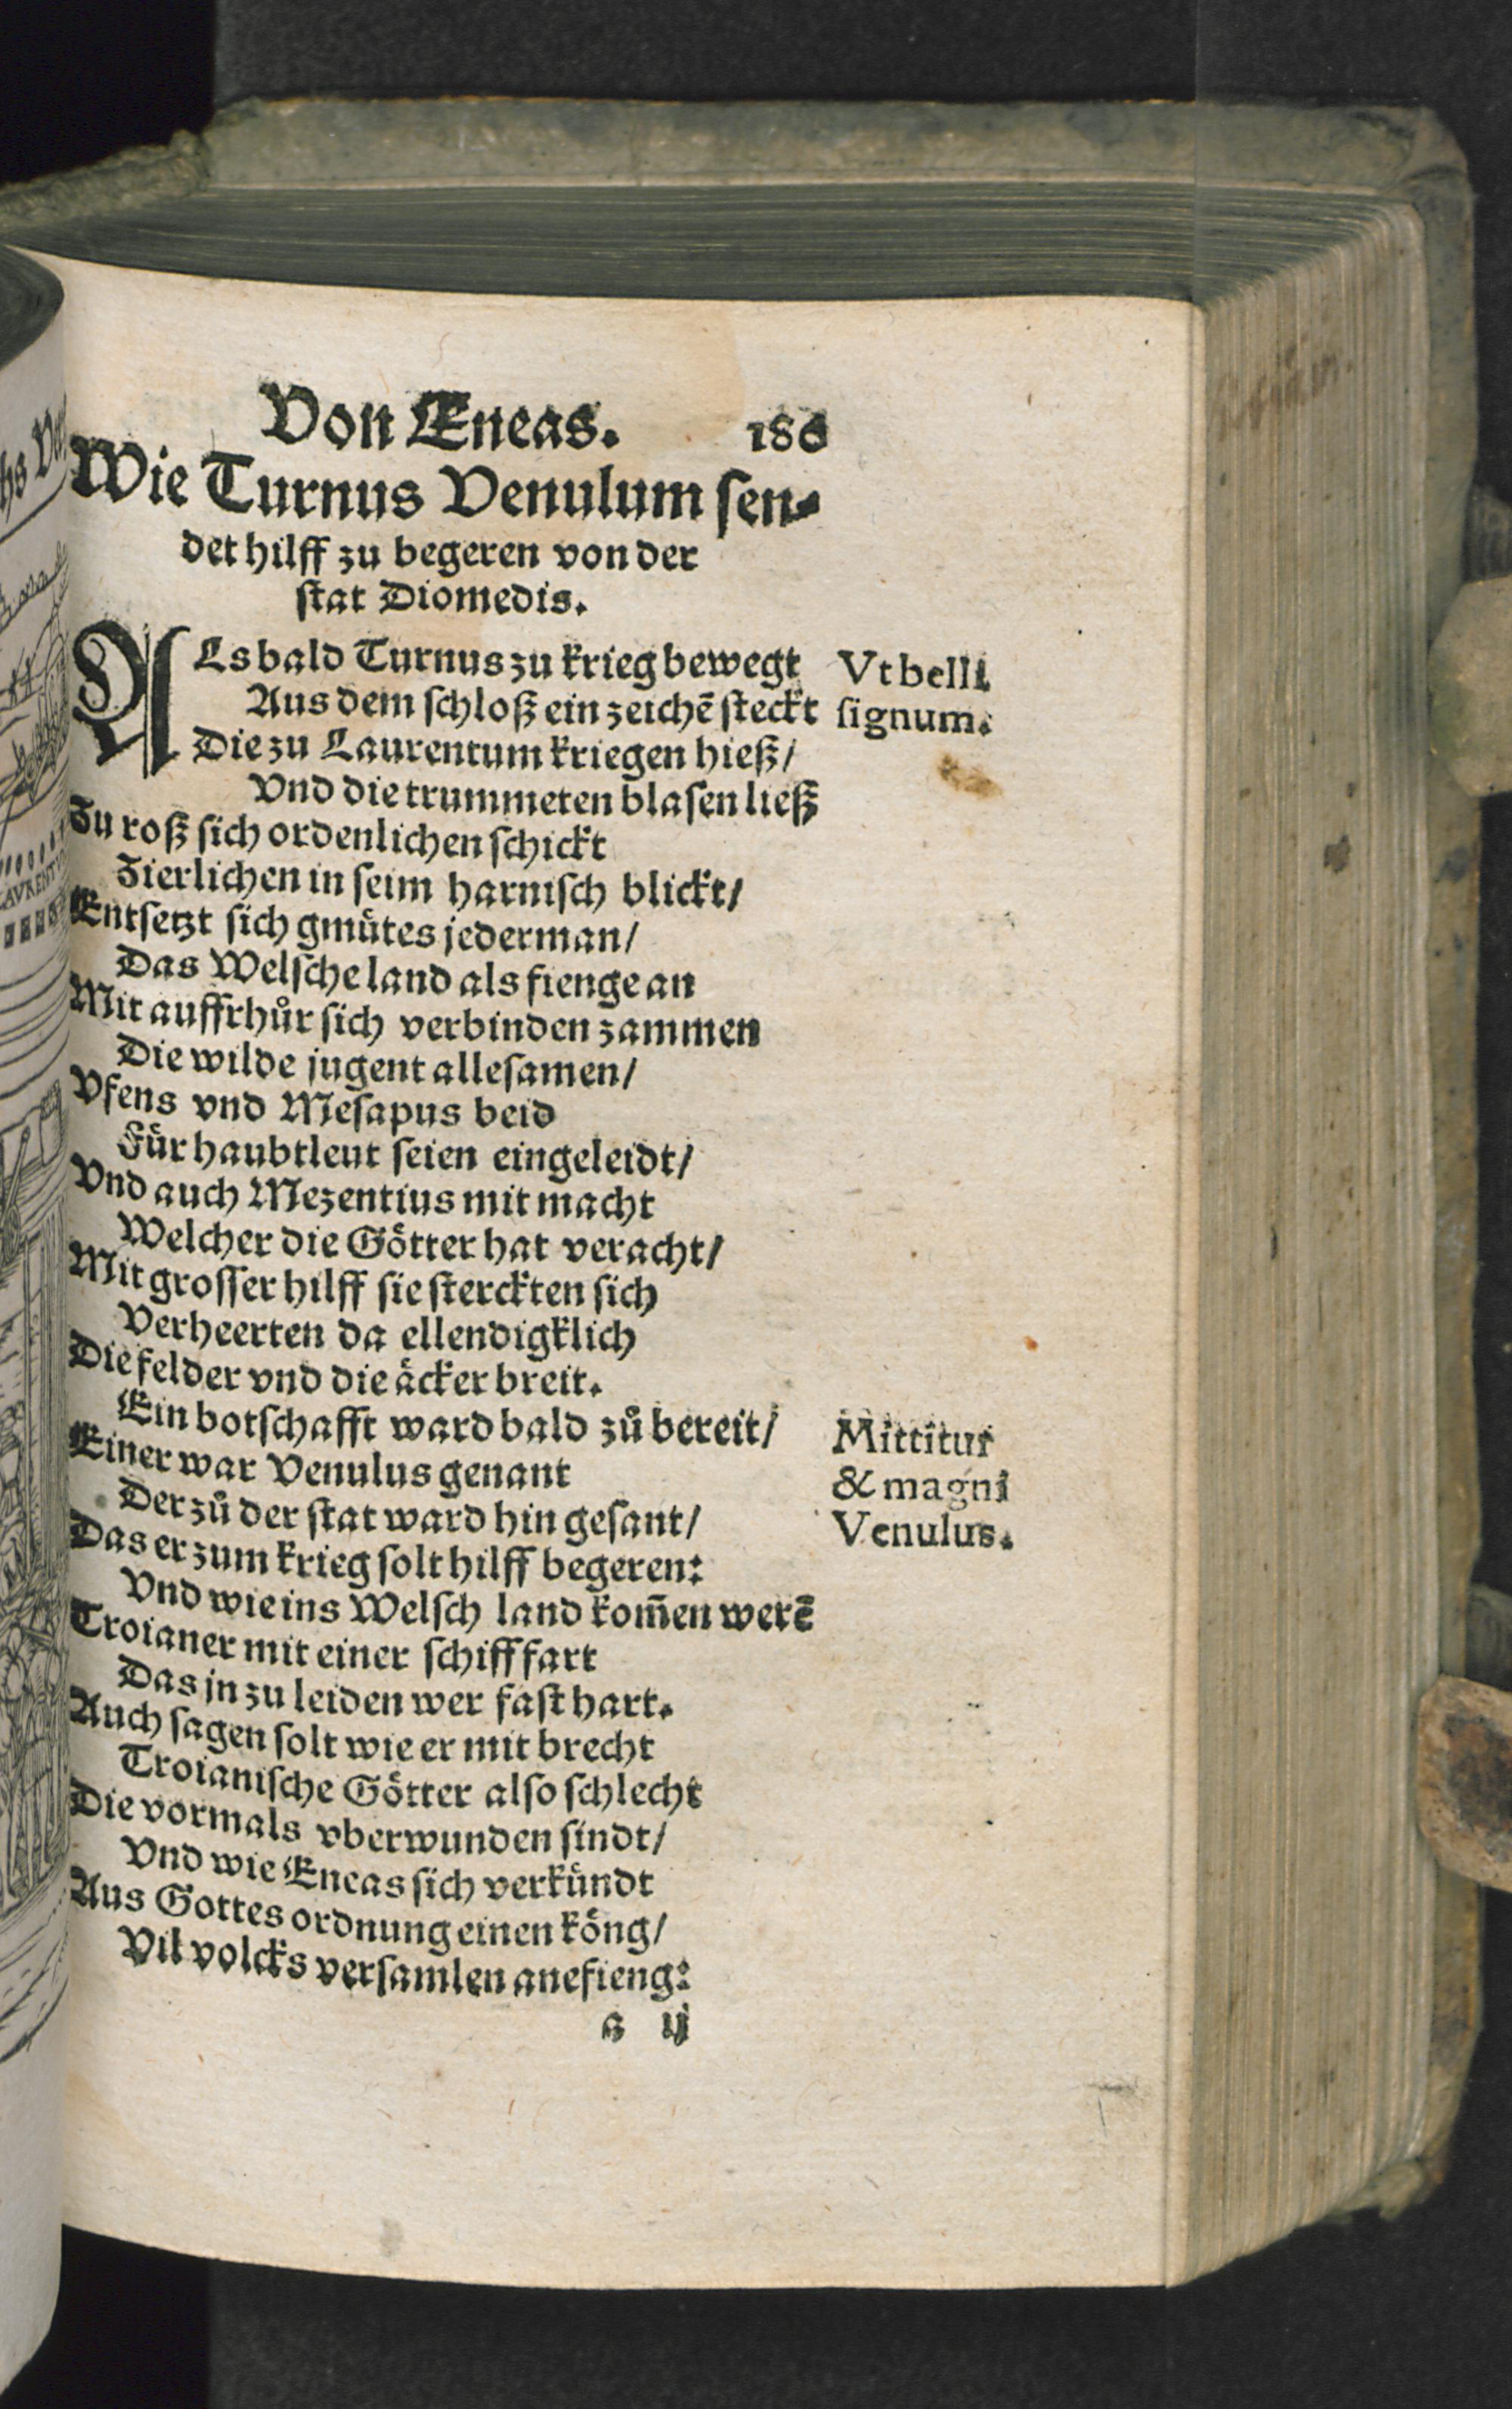 Von Eneas. 186
Wie Turnus Venulum sen⸗
det hilff zu begeren von der
stat Diomedis.
ALs bald Turnus zu krieg bewegt
Aus dem schloß ein zeichē steckt
Die zu Laurentum kriegen hieß/
Vnd die trummeten blasen ließ
Zu roß sich ordenlichen schickt
Zierlichen in seim harnisch blickt/
Entsetzt sich gmuͤtes jederman/
Das Welsche land als fienge an
Mit auffrhuͦr sich verbinden zammen
Die wilde jugent allesamen/
Vfens vnd Mesapus beid
Fuͤr haubtleut seien eingeleidt/
Vnd auch Mezentius mit macht
Welcher die Goͤtter hat veracht/
Mit grosser hilff sie sterckten sich
Verheerten da ellendigklich
Die felder vnd die aͤcker breit.
Ein botschafft ward bald zuͦ bereit/
Einer war Venulus genant
Der zuͦ der stat ward hin gesant/
Das er zum krieg solt hilff begeren:
Vnd wie ins Welsch land kom̄en werē
Troianer mit einer schifffart
Das jn zu leiden wer fast hart.
Auch sagen solt wie er mit brecht
Troianische Goͤtter also schlecht
Die vormals vberwunden sindt/
Vnd wie Eneas sich verkuͤndt
Aus Gottes ordnung einen koͤng/
Vil volcks versamlen anefieng:
a ij
Vt belli
signum.
Mittitur
& magni
Venulus.